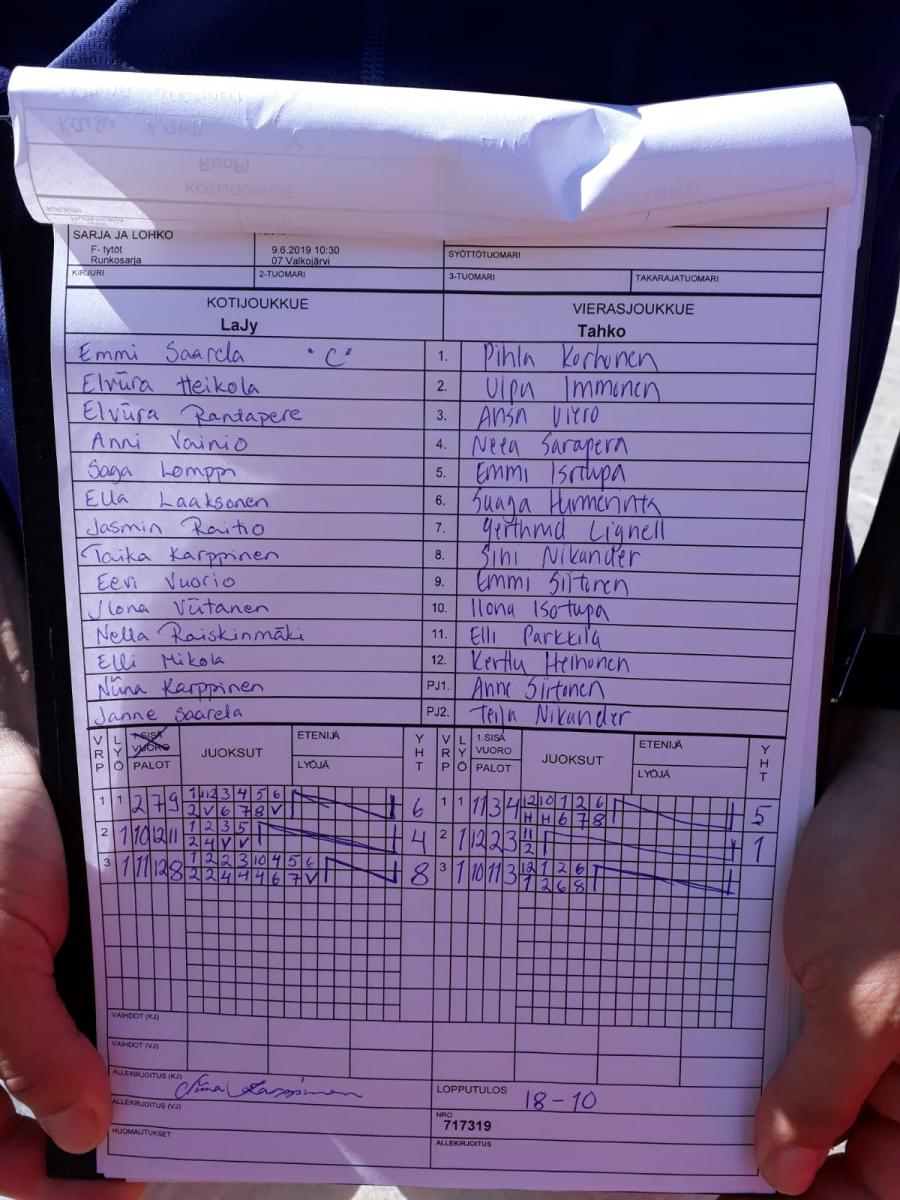 RuoPi
KOTIJOUKKUE
KIRJURI
SARJA JA LOHKO
F- tytöt 9.6.2019 10:30
Runkosarja 07 Valkojärvi SYÖTTÖTUOMARI
KIRJURI 2-TUOMARI 3-TUOMARI TAKARAJATUOMARI
KOTIJOUKKUE VIERASJOUKKUE
LaJy Tahko
Emmi Saarela "C" 1. Pihla Korhonen
Elviira Heikola 2. Ulpu Immonen
Elviira Rantapere 3. Ansa Viero
Anni Vainio 4. Neea Sarapera
Saga Lomppi 5. Emmi Isotupa
Ella Laaksonen 6. Saaga
Jasmin Raitio 7. Lignell
Taika Karppinen 8. Sini Nikander
Eevi Vuorio 9. Emmi Siitonen
Ilona Viitanen 10. Ilona Isotupa
Nella Raiskinmäki 11. Elli Parkkila
Elli Mikola 12. Kerttu Heinonen
Niina Karppinen PJ1. Anne Siitonen
Janne Saarela PJ2. Teija Nikander
VRP LYÖ 1.SISÄ VUORO PALOT JUOKSUT ETENIJÄ LYÖJÄ YHT VRP LYÖ 1.SISÄ VUORO PALOT JUOKSUT ETENIJÄ LYÖJÄ YHT
1 1 2 7 9 1 12 3 4 5 6 6 1 1 11 3 4 12 10 1 2 6 5
2 V 6 7 8 V H H 6 7 8
2 1 10 12 11 1 2 3 5 4 2 1 12 2 3 11 1
2 4 V V 2
3 1 11 12 8 1 2 2 3 10 4 5 6 8 3 1 10 11 3 12 1 2 6
2 2 4 4 4 6 7 V 1 2 6 8
VAIHDOT (KJ)
VAIHDOT (VJ)
ALLEKIRJOITUS (KJ) Niina Karppinen LOPPUTULOS 18-10
ALLEKIRJOITUS (VJ) NRO
717319
HUOMAUTUKSET ALLEKIRJOITUS